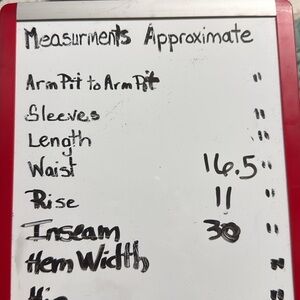 Measurments Approximate
ArmPit to ArmPit "
Sleeves "
Length "
Waist 16.5"
Rise 11 "
Inseam 30 "
Hem Width "